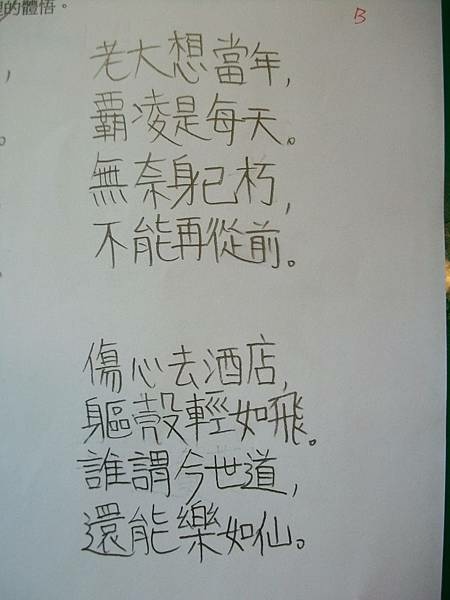 的體悟。
B
老大想當年,
霸凌是每天。
無奈身已朽,
不能再從前。
傷心去酒店,
軀殼輕如飛。
誰謂今世道,
還能樂如仙。